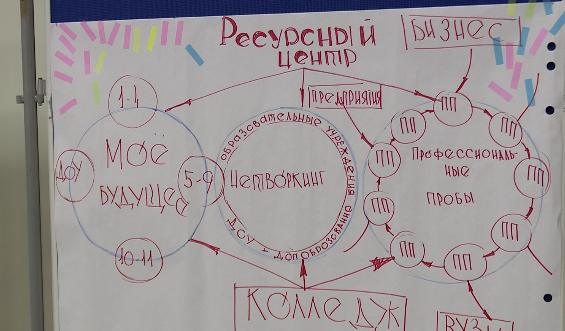 Ресурсный
центр
БИЗНЕС
Предприятия
1-4
МОЁ
БУДУЩЕЕ
ДОУ
5-9
10-11
ОБРАЗОВАТЕЛЬНЫЕ УЧРЕЖДЕНИЯ
НЕТВОРКИНГ
ДОУ + ДОПОБРАЗОВАНИЕ
ПП
ПП
ПП
ПП
ПП
ПП
ПП
ПП
ПП
ПРОФЕССИОНАЛЬ-
НЫЕ
ПРОБЫ
КОЛЛЕДЖ
ВУЗЫ